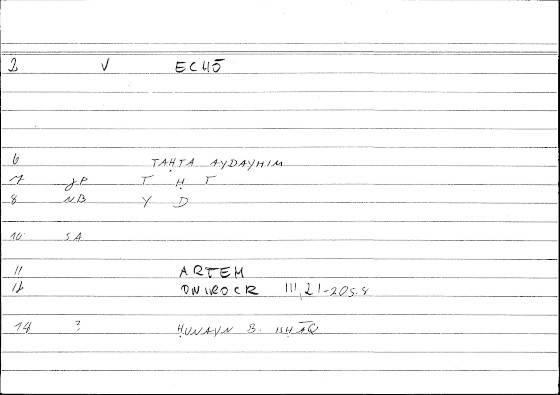 2 V ECHŌ
6 TAḤTA AYDAYHIM
7 JP T Ḥ T
8 NB Y D
10 SA
11 ARTEM
12 ONIROCR III,21-205.8
14 ? ḤUNAYN B. ISḤĀQ